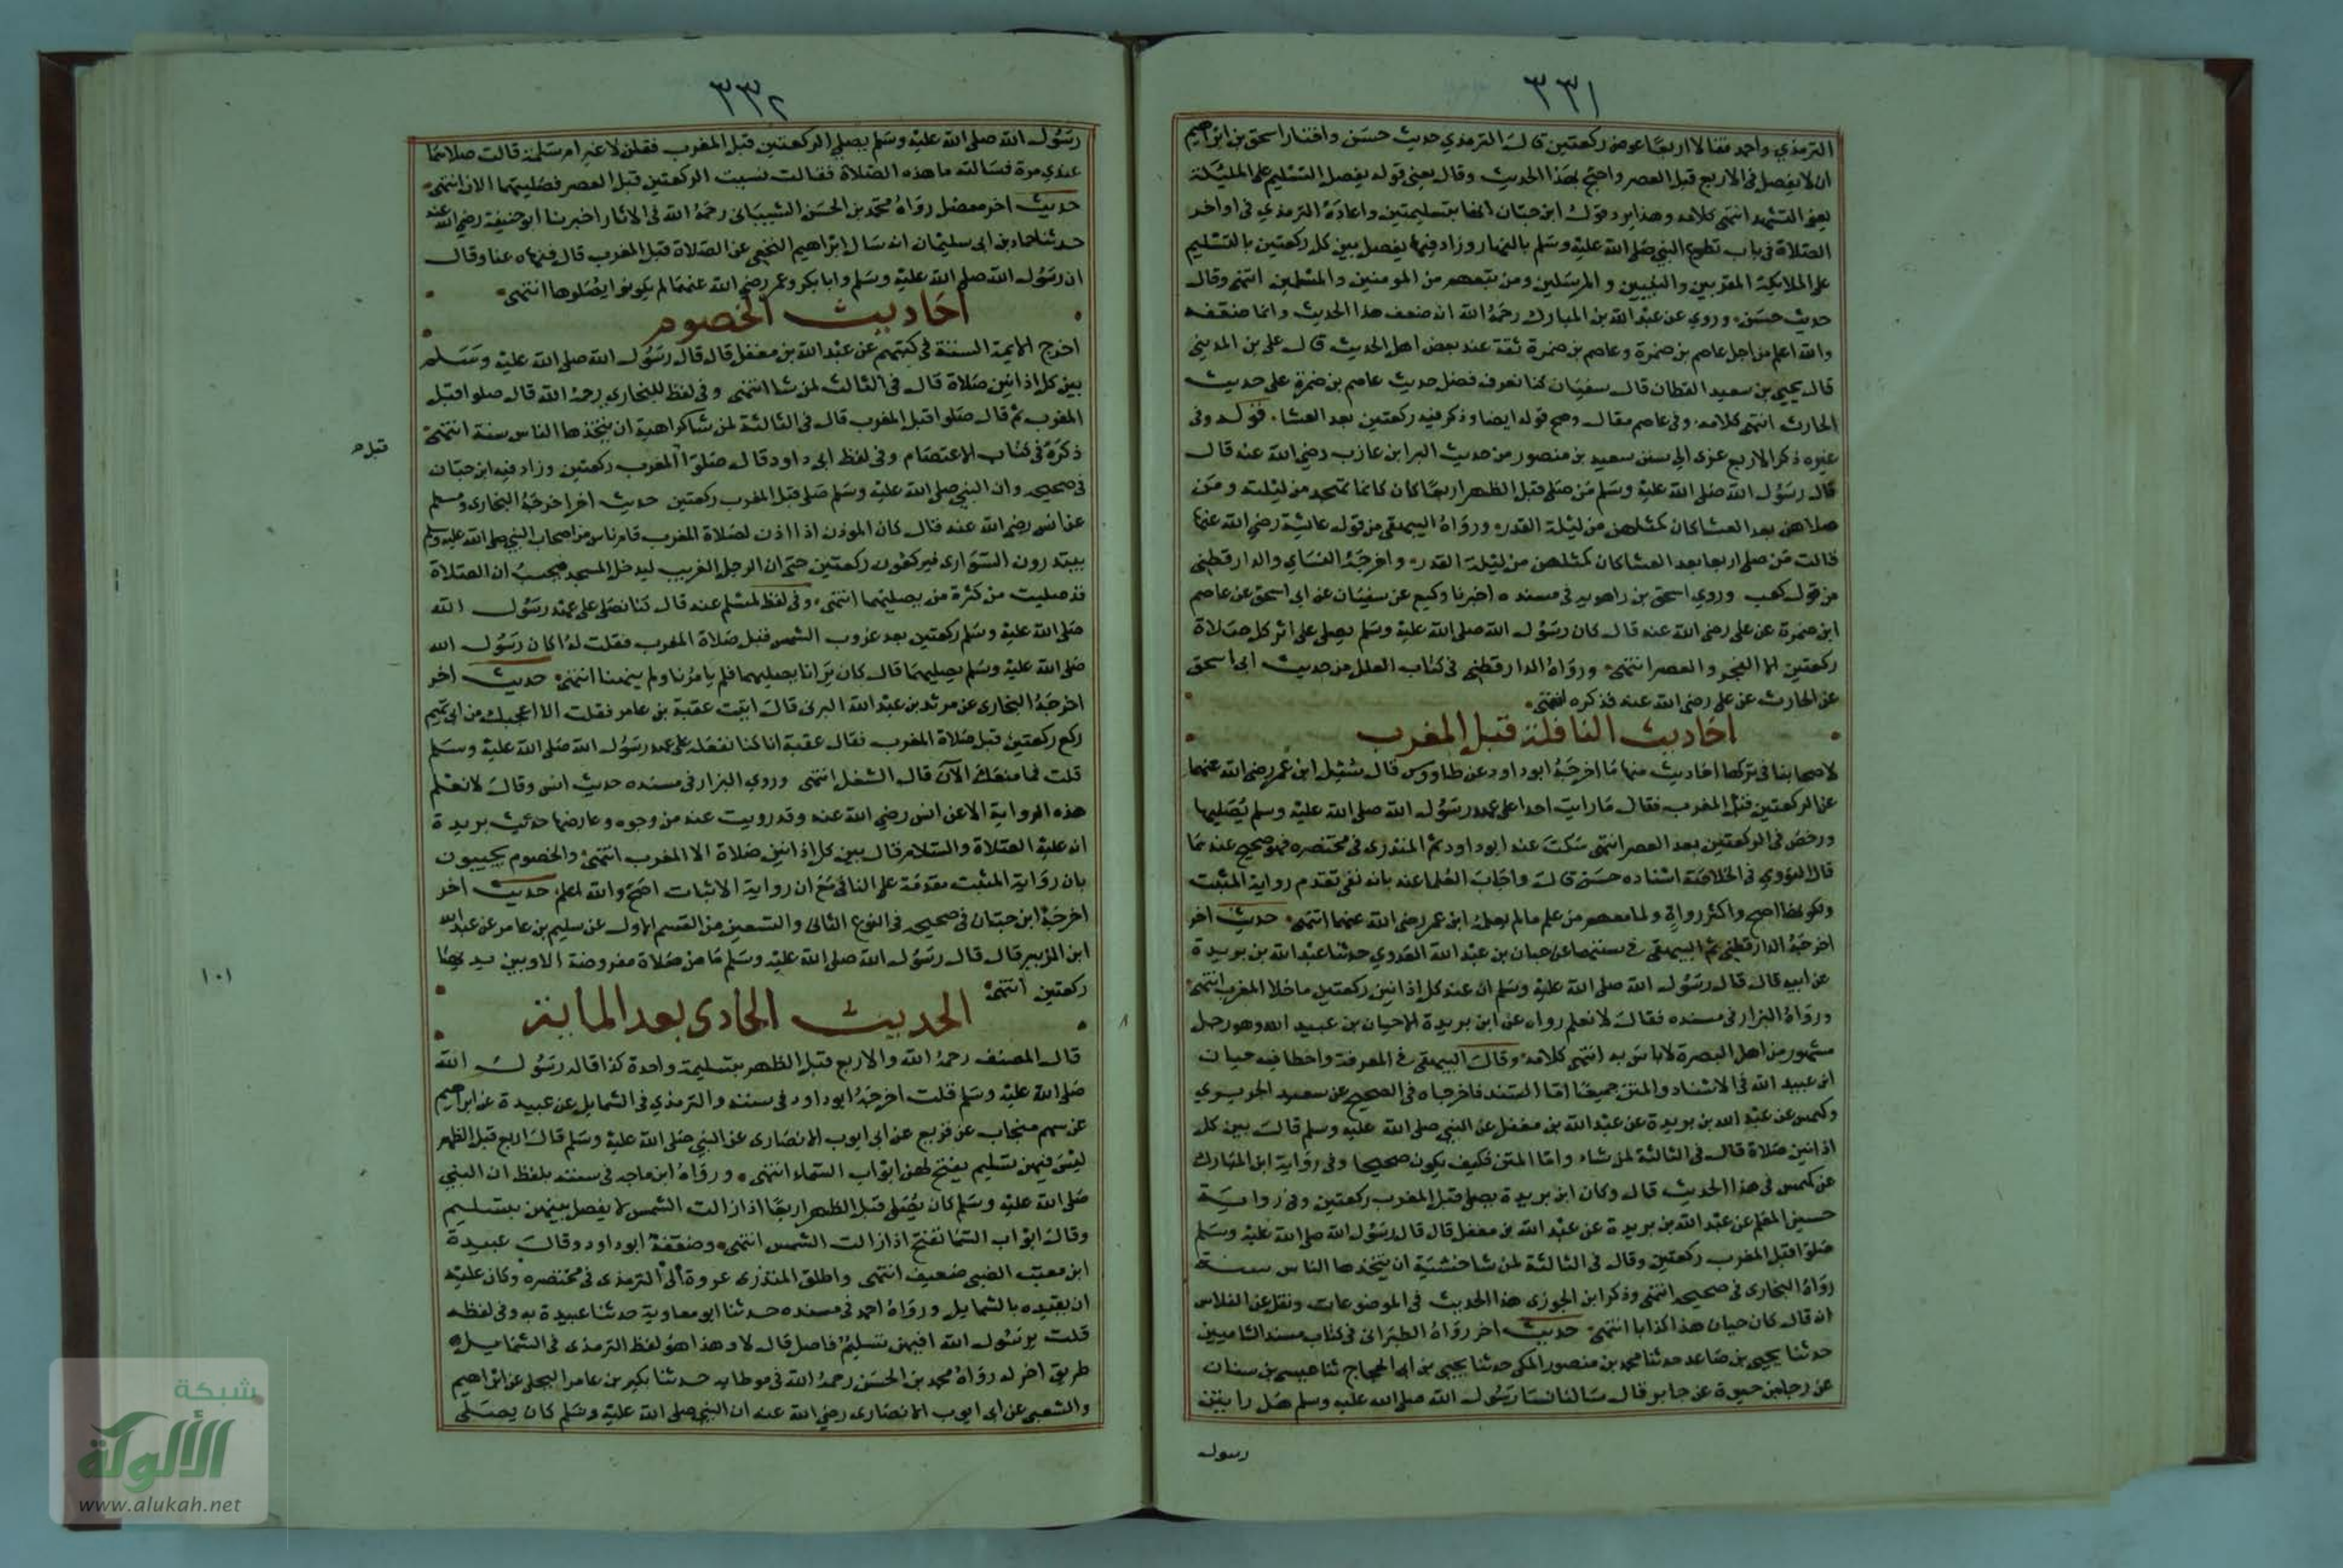 ٣٣١
الترمذي واحمد فقالا اربعا عوض ركعتين قال الترمذي حديث حسن واختار اسحق بن ابراهيم
ان لا يفصل في الاربع قبل العصر واحتج بهذا الحديث وقال يعني قوله يفصل بالتسليم على المليكة
يعني التشهد انتهى كلامه وهذا يرد قول ابن حبان انها بتسليمتين واعاده الترمذي في اواخر
الصلاة في باب تطوع النبي صلى الله عليه وسلم بالنهار وزاد فيها يفصل بين كل ركعتين بالتسليم
على الملايكة المقربين والنبيين والمرسلين ومن تبعهم من المومنين والمسلمين انتهى وقال
حديث حسن وروي عن عبد الله بن المبارك رحمه الله انه ضعف هذا الحديث وانما ضعفه
والله اعلم من اجل عاصم بن ضمرة وعاصم بن ضمرة ثقة عند بعض اهل الحديث قال علي بن المديني
قال يحيي بن سعيد القطان قال سفيان كنا نعرف فضل حديث عاصم بن ضمرة على حديث
الحارث انتهى كلامه وفي عاصم مقال وصح قوله ايضا وذكر فيه ركعتين بعد العشا قوله وفي
غيره ذكر الاربع عزى الى سنن سعيد بن منصور من حديث البرا بن عازب رضي الله عنه قال
قال رسول الله صلى الله عليه وسلم من صلى قبل الظهر اربعا كان كانما تهجد من ليلته ومن
صلاهن بعد العشا كان كمثلهن من ليلة القدر ورواه البيهقي من قول عايشة رضي الله عنها
قالت من صلى اربعا بعد العشا كان كمثلهن من ليلة القدر واخرجه النساي والدارقطني
من قول كعب وروي اسحق بن راهويه في مسنده اخبرنا وكيع عن سفيان عن ابي اسحق عن عاصم
ابن ضمرة عن علي رضي الله عنه قال كان رسول الله صلى الله عليه وسلم يصلي على اثر كل صلاة
ركعتين الا الفجر والعصر انتهى ورواه الدارقطني في كتاب العلل من حديث ابي اسحق
عن الحارث عن علي رضي الله عنه فذكره انتهى
احاديث النافلة قبل المغرب
لاصحابنا في تركها احاديث منها ما اخرجه ابو داود عن طاووس قال سئل ابن عمر رضي الله عنهما
عن الركعتين قبل المغرب فقال ما رايت احدا على عهد رسول الله صلى الله عليه وسلم يصليها
ورخص في الركعتين بعد العصر انتهى سكت عنه ابو داود ثم المنذرى في مختصره فهو صحيح عندهما
قال النووي في الخلاصة اسناده حسن قال واجاب العلما عنه بانه نفي تقدم رواية المثبت
ولكونها اصح واكثر رواة ولما معهم من علم ما لم يعلمه ابن عمر رضي الله عنهما انتهى حديث اخر
اخرجه الدارقطني ثم البيهقي في سننهما عن حيان بن عبد الله العدوي حدثنا عبد الله بن بريدة
عن ابيه قال قال رسول الله صلى الله عليه وسلم ان عند كل اذانين ركعتين ماخلا المغرب انتهى
ورواه البزار في مسنده فقال لا نعلم رواه عن ابن بريدة الا حيان بن عبيد الله وهو رجل
مشهور من اهل البصرة لا باس به انتهى كلامه وقال البيهقي في المعرفة واخطا فيه حيان
ابن عبيد الله في الاسناد والمتن جميعا اما السند فاخرجاه في الصحيح عن سعيد الجريري
وكهمس عن عبد الله بن بريدة عن عبد الله بن مغفل عن النبي صلى الله عليه وسلم قال بين كل
اذانين صلاة قال في الثالثة لمن شاء واما المتن فكيف يكون صحيحا وفي رواية ابن المبارك
عن كهمس في هذا الحديث قال وكان ابن بريدة يصلي قبل المغرب ركعتين وفي رواية
حسين المعلم عن عبد الله بن بريدة عن عبد الله بن مغفل قال قال رسول الله صلى الله عليه وسلم
صلوا قبل المغرب ركعتين وقال في الثالثة لمن شا خشية ان يتخذها الناس سنة
رواه البخارى في صحيحه انتهى وذكر ابن الجوزى هذا الحديث في الموضوعات ونقل عن الفلاس
انه قال كان حيان هذا كذابا انتهى حديث اخر رواه الطبراني في كتاب مسند الشاميين
حدثنا يحيى بن صاعد حدثنا محمد بن منصور المكي حدثنا يحيي بن ابي الحجاج ثنا عيسى بن سنان
عن رجا بن حيوة عن جابر قال سالنا نسا رسول الله صلى الله عليه وسلم هل رايتن
رسول
٣٣٢
رسول الله صلى الله عليه وسلم يصلي الركعتين قبل المغرب فقلن لا غير ام سلمة قالت صلاهما
عندي مرة فسالته ما هذه الصلاة فقالت نسيت الركعتين قبل العصر فصليتهما الان انتهى
حديث اخر معضل رواه محمد بن الحسن الشيباني رحمه الله في الاثار اخبرنا ابو حنيفة رضي الله عنه
حدثنا حماد بن ابي سليمان انه سال ابراهيم النخعي عن الصلاة قبل المغرب قال فنهاه عنا وقال
ان رسول الله صلى الله عليه وسلم وابا بكر وعمر رضي الله عنهما لم يكونوا يصلوها انتهى
احاديث الخصوم
اخرج الايمة الستة في كتبهم عن عبد الله بن مغفل قال قال رسول الله صلى الله عليه وسلم
بين كل اذانين صلاة قال في الثالث لمن شا انتهى وفي لفظ للبخارى رحمه الله قال صلوا قبل
المغرب ثم قال صلوا قبل المغرب قال في الثالثة لمن شا كراهية ان يتخذها الناس سنة انتهى
ذكره في كتاب الاعتصام وفي لفظ ابي داود قال صلوا المغرب ركعتين وزاد فيه ابن حبان
قبل صح
في صحيحه وان النبي صلى الله عليه وسلم صلى قبل المغرب ركعتين حديث اخر اخرجه البخارى ومسلم
عن انس رضي الله عنه قال كان الموذن اذا اذن لصلاة المغرب قام ناس من اصحاب النبي صلى الله عليه وسلم
يبتدرون السوارى فيركعون ركعتين حتى ان الرجل الغريب ليدخل المسجد فيحسب ان الصلاة
قد صليت من كثرة من يصليهما انتهى وفي لفظ لمسلم عنه قال كنا نصلي على عهد رسول الله
صلى الله عليه وسلم ركعتين بعد غروب الشمس قبل صلاة المغرب فقلت له اكان رسول الله
صلى الله عليه وسلم يصليهما قال كان يرانا نصليهما فلم يامرنا ولم ينهنا انتهى حديث اخر
اخرجه البخارى عن مرثد بن عبد الله اليزني قال اتيت عقبة بن عامر فقلت الا اعجبك من ابي تميم
ركع ركعتين قبل صلاة المغرب فقال عقبة انا كنا نفعله على عهد رسول الله صلى الله عليه وسلم
قلت فما منعك الآن قال الشغل انتهى وروي البزار في مسنده حديث انس وقال لا نعلم
هذه الرواية الا عن انس رضي الله عنه وقد رويت عنه من وجوه وعارضها حديث بريدة
انه عليه الصلاة والسلام قال بين كل اذانين صلاة الا المغرب انتهى والخصوم يجيبون
بان رواية المثبت مقدمة على النافي مع ان رواية الاثبات اصح والله اعلم حديث اخر
اخرجه ابن حبان في صحيحه في النوع الثاني والتسعين من القسم الاول عن سليم بن عامر عن عبد الله
ابن الزبير قال قال رسول الله صلى الله عليه وسلم ما من صلاة مفروضة الا وبين يديها
ركعتين انتهى
١٠١
الحديث الحادى بعد الماية
قال المصنف رحمه الله والاربع قبل الظهر بتسليمة واحدة كذا قاله رسول الله
صلى الله عليه وسلم قلت اخرجه ابو داود في سننه والترمذي في الشمايل عن عبيدة عن ابراهيم
عن سهم بن منجاب عن قزيع عن ابي ايوب الانصارى عن النبي صلى الله عليه وسلم قال اربع قبل الظهر
ليس فيهن تسليم يفتح لهن ابواب السماء انتهى ورواه ابن ماجه في سننه بلفظ ان النبي
صلى الله عليه وسلم كان يصلي قبل الظهر اربعا اذا زالت الشمس لا يفصل بينهن بتسليم
وقال ابواب السما تفتح اذا زالت الشمس انتهى وضعفه ابو داود وقال عبيدة
ابن معتب الضبي ضعيف انتهى واطلق المنذرى عزوه الى الترمذى في مختصره وكان عليه
ان يقيده بالشمايل ورواه احمد في مسنده حدثنا ابو معاوية حدثنا عبيدة به وفي لفظه
قلت يرسول الله افيهن تسليم فاصل قال لا وهذا هو لفظ الترمذى في الشمايل
طريق اخر له رواه محمد بن الحسن رحمه الله في موطايه حدثنا بكير بن عامر البجلي عن ابراهيم
والشعبي عن ابي ايوب الانصارى رضي الله عنه ان النبي صلى الله عليه وسلم كان يصلي
شبكة
الألوكة
www.alukah.net